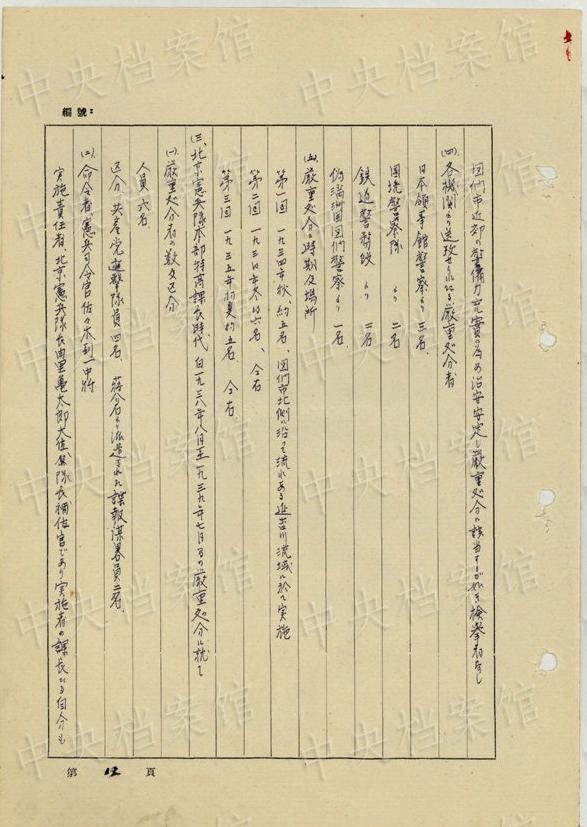 編號:
図們市近郊の警備力充實の為め治安安定し厳重処分に該当すべき検挙者なし
(四)、各機関より送致せられたる厳重処分者
日本領事館警察より 三名、
国境警察隊 より 二名
鉄道警務段 より 二名
偽満洲国図們警察より 一名、
(五)、厳重処分の時期及場所
第一回 一九三四年秋、約五名、図們市北側に沿て流れある 川流域に於て実施
第二回 一九三 年冬 六名、仝右
第三回 一九三五年初夏約五名、仝右
(三)、北京憲兵隊本部特高課長時代、自一九三八年八月至一九三九年七月 の厳重処分に就て
(一)、厳重処分者の数及区分
人員 六名
区分 共産党遊撃隊員四名、 蒋介石より派遣された諜報謀畧員二名、
(二)、命令者、憲兵司令官佐々木到一中将
実施責任者、北京憲兵隊長 里亀太郎大佐 隊長補佐官であり実施者の課長たる自分も
第 12 頁
中央档案馆